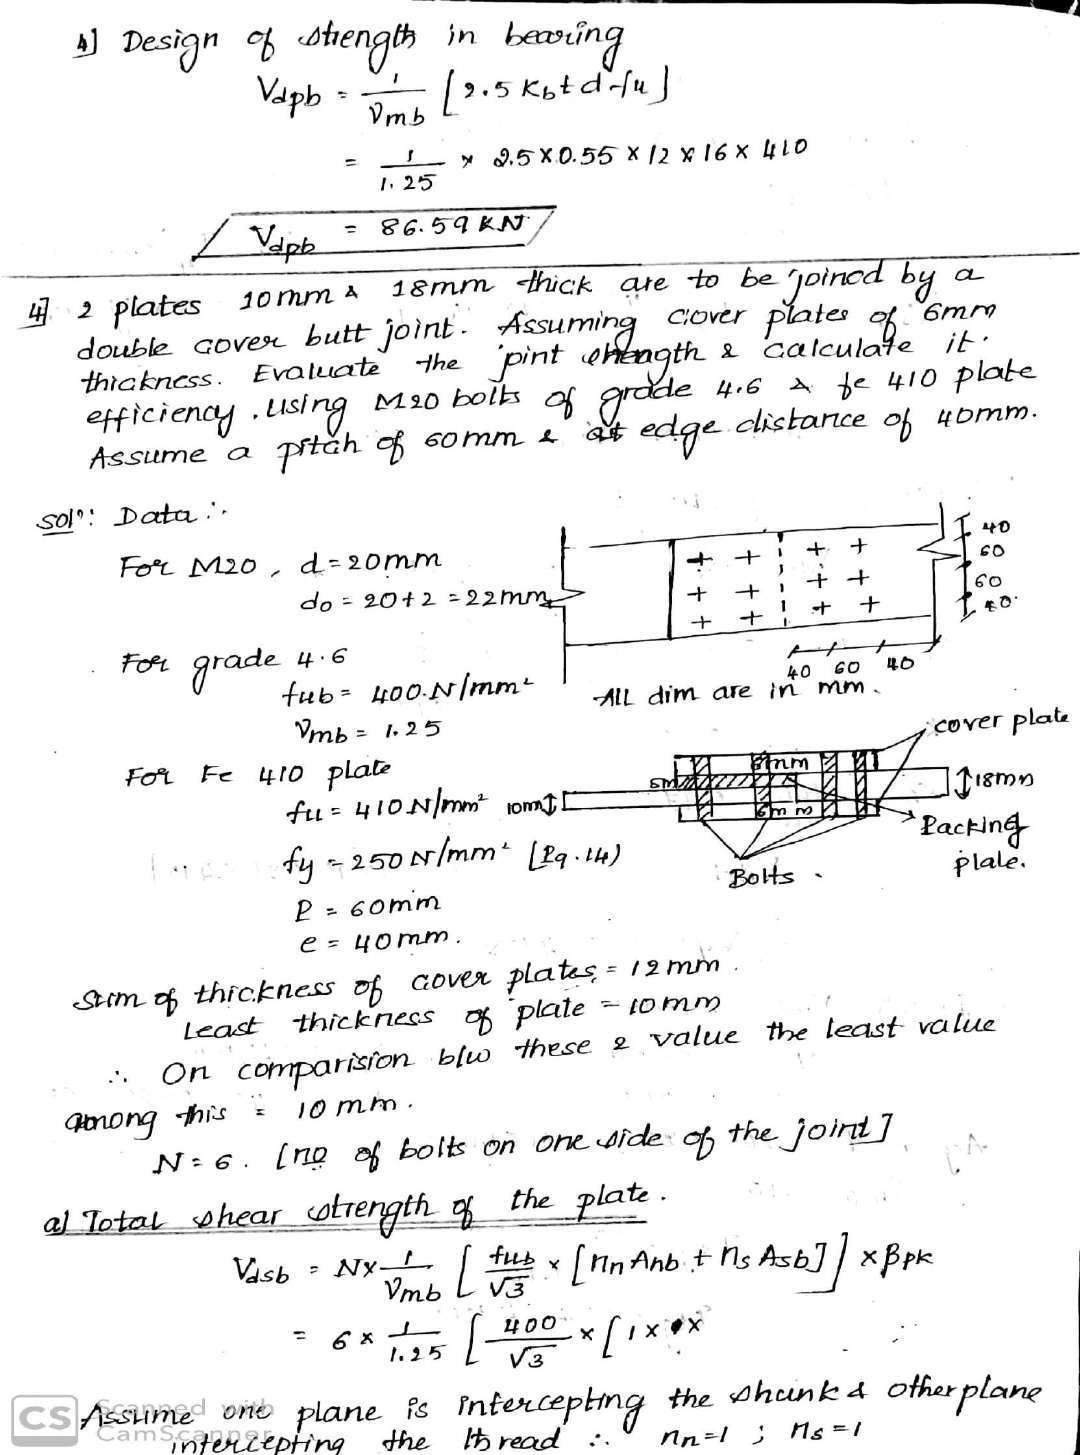 4] Design of strength in bearing
Vdpb = 1/γmb [2.5 Kb t d fu]
= 1/1.25 × 2.5 × 0.55 × 12 × 16 × 410
Vdpb = 86.59 KN
4] 2 plates 10mm & 18mm thick are to be joined by a
double cover butt joint. Assuming cover plates of 6mm
thickness. Evaluate the joint strength & calculate it.
efficiency. Using M20 bolts of grade 4.6 & fe 410 plate
Assume a pitch of 60mm & edge distance of 40mm.
Solⁿ: Data:-
For M20, d = 20mm
do = 20+2 = 22mm
For grade 4.6
fub = 400 N/mm²
γmb = 1.25
For Fe 410 plate
fu = 410 N/mm²
fy = 250 N/mm² [Pg.14)
P = 60mm
e = 40mm.
40
60
60
40
40 60 40
All dim are in mm.
cover plate
6mm
8mm
18mm
10mm
6mm
Packing
plate.
Bolts
Sum of thickness of cover plates = 12mm.
Least thickness of plate = 10mm
∴ On comparision b/w these 2 value the least value
among this = 10mm.
N = 6. [no of bolts on one side of the joint]
a] Total shear strength of the plate.
Vdsb = N× 1/γmb [fub/√3 × [nn Anb + ns Asb]] × βpk
= 6 × 1/1.25 [400/√3 × [1 × ×
Assume one plane is intercepting the shunk & other plane
intercepting the thread ∴ nn=1 ; ns=1
CS Scanned with
CamScanner